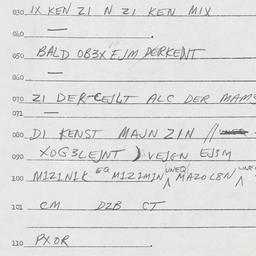 030 IX KEN ZI N ZI KEN MIX
040 — .
050 BALD OB3X EJM DERKENT
060 —
070 ZI DER CEILT ALC DER MAMS
071 —
080 DI KENST MAJN ZIN //
090 XOG3LEJNT ) VEJGN EJ3M
100 M1Z1N1K EQ M1Z1M1N UNEQ MAZOLBN UNEQ
101 CM DZB CT
110 PXOR .